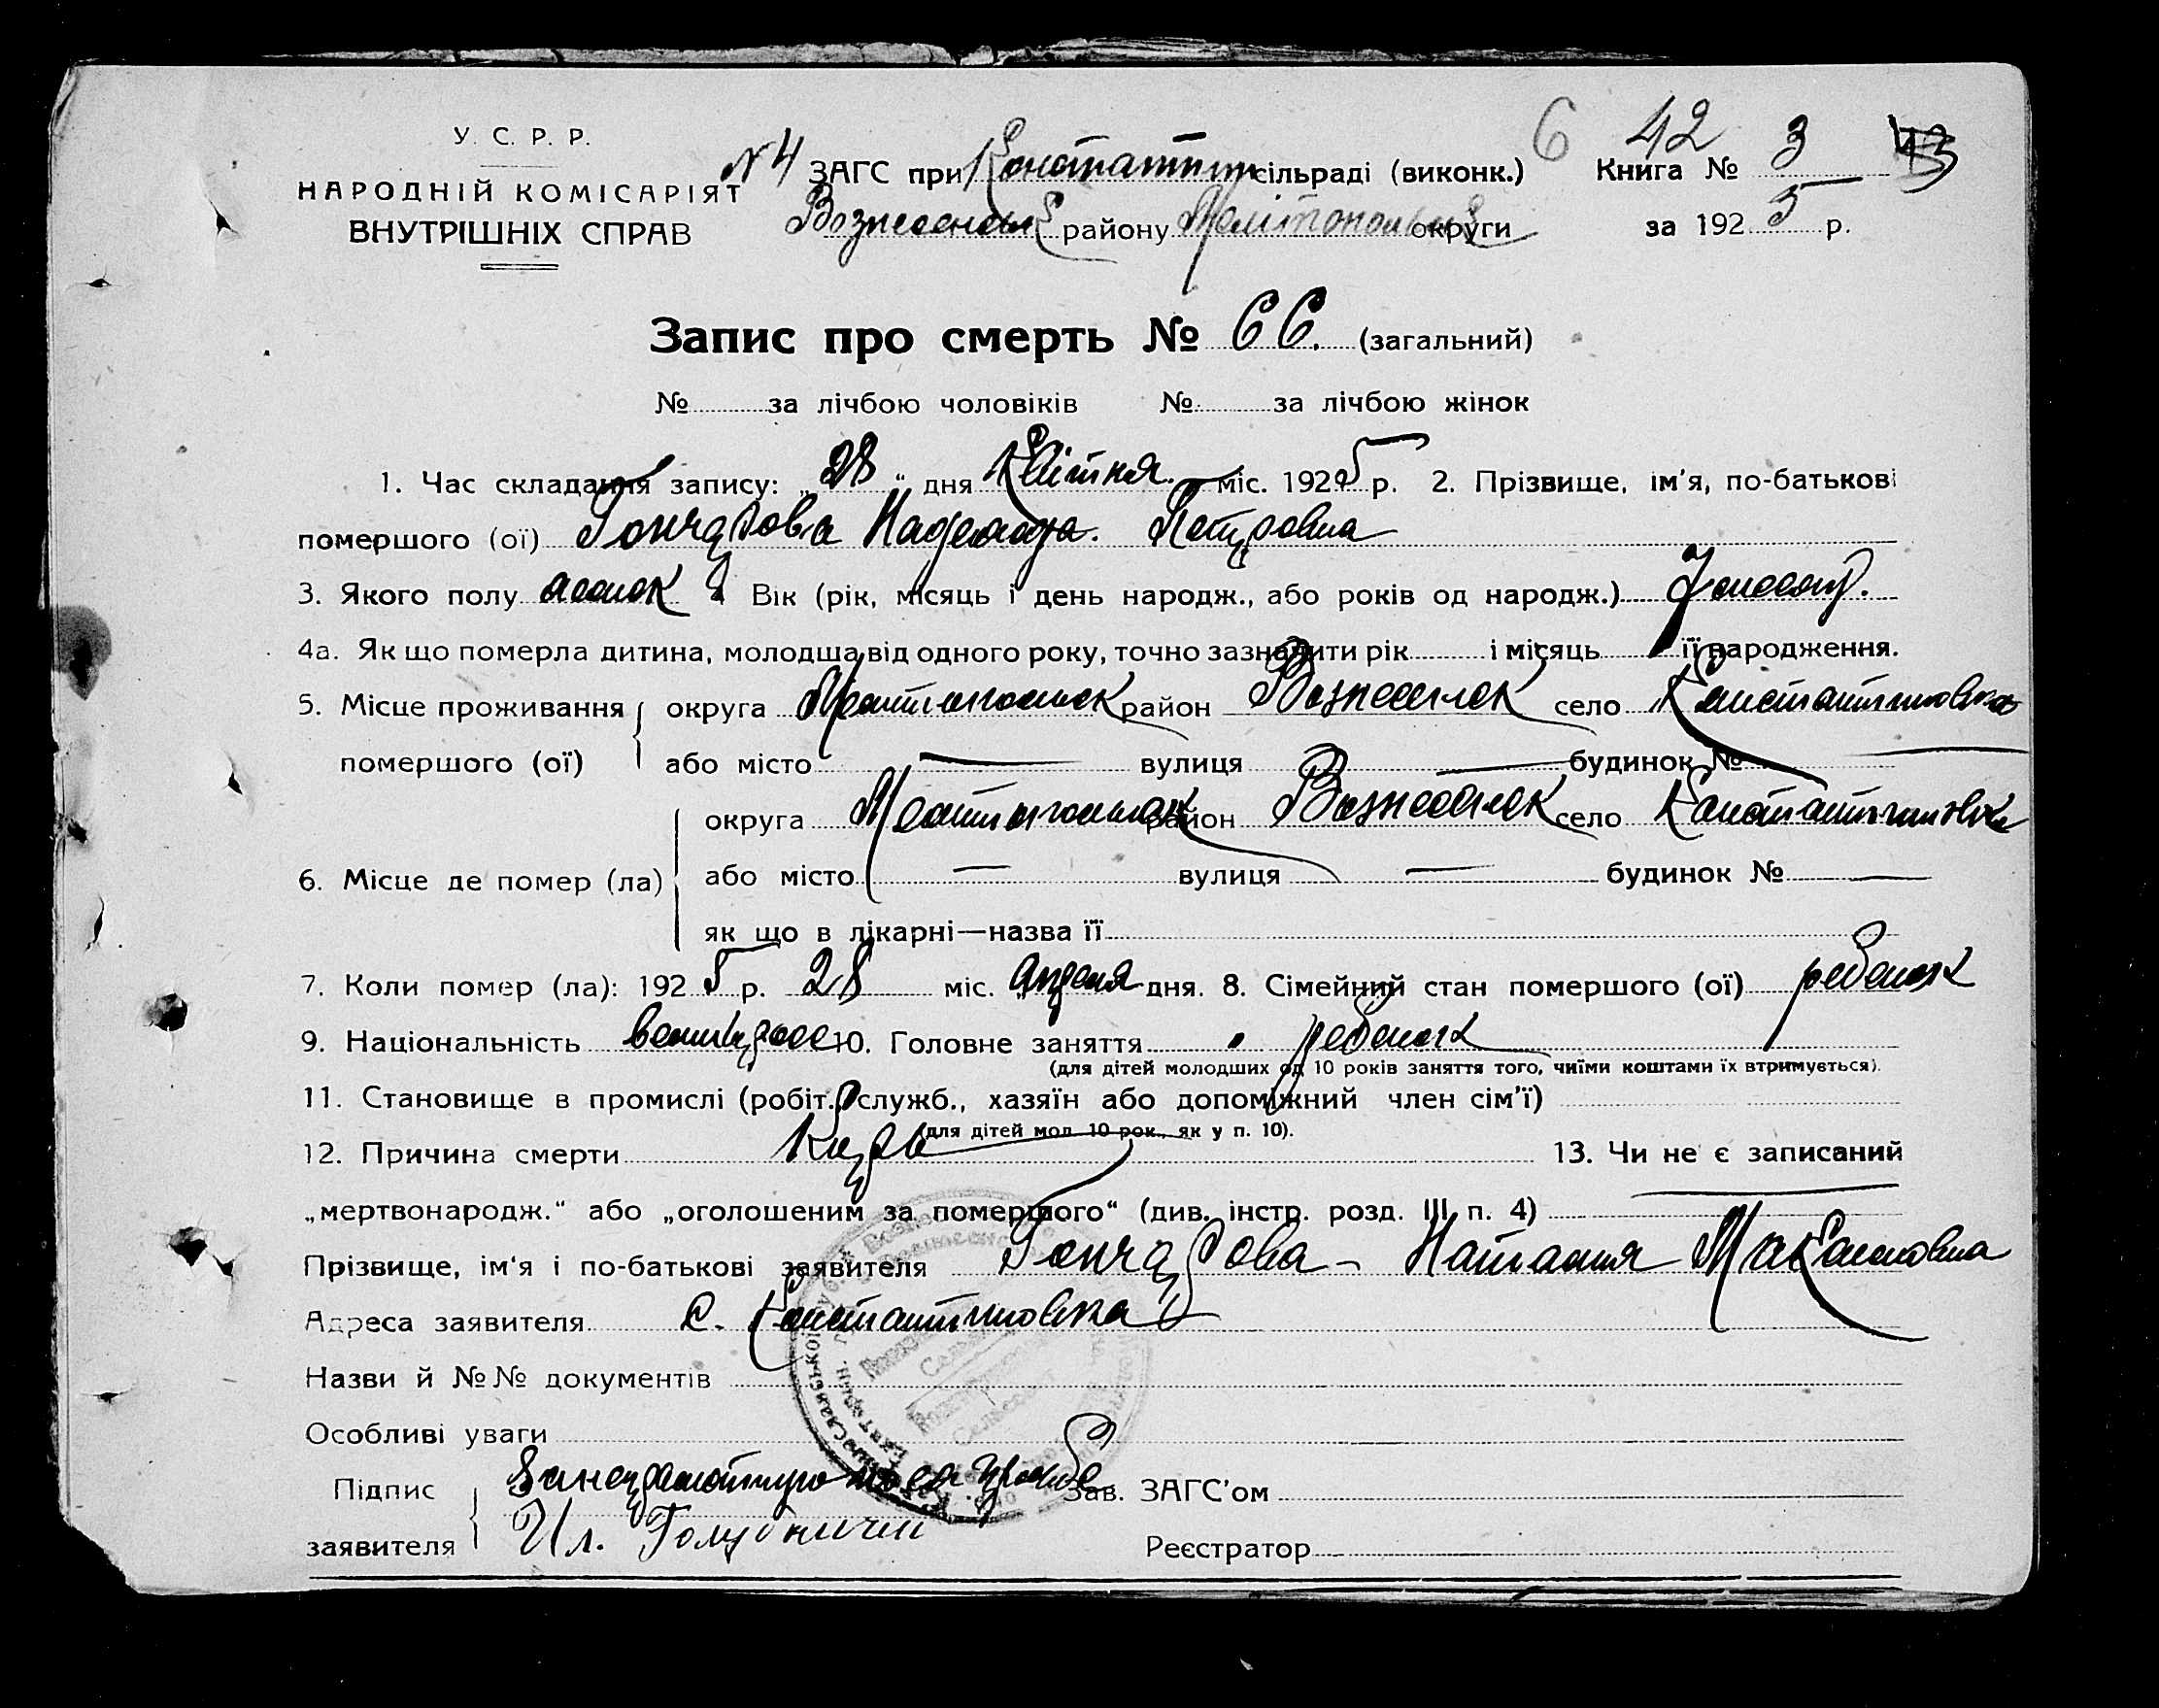 У. С. Р. Р.
НАРОДНІЙ КОМІСАРІЯТ
ВНУТРІШНІХ СПРАВ
N 4 ЗАГС при Константин сільраді (виконк.)
Вознесенськ району Мелітопольськ округи
6 42
Книга № 3
за 1925 р.
Запис про смерть № 66. (загальний)
№ за лічбою чоловіків № за лічбою жінок
1. Час складання запису: „28“ дня Квітня міс. 1925 р. 2. Прізвище, ім'я, по-батькові
помершого (ої) Гончарова Надежда. Петровна
3. Якого полу женск 4 Вік (рік, місяць і день народж., або років од народж.)
4а. Як що померла дитина, молодша від одного року, точно зазначити рік і місяць її народження.
5. Місце проживання помершого (ої) округа Мелитопольск район Вознесенск село Константиновка
або місто — вулиця — будинок № —
6. Місце де помер (ла) округа Мелитопольск район Вознесенск село Константиновка
або місто — вулиця — будинок № —
як що в лікарні—назва її
7. Коли помер (ла): 1925 р. 28 міс. „апреля дня. 8. Сімейний стан помершого (ої) ребенок
9. Національність 10. Головне заняття ребенок
(для дітей молодших од 10 років заняття того, чиїми коштами їх втримується).
11. Становище в промислі (робіт., служб., хазяїн або допоміжний член сім'ї)
(для дітей мол. 10 рок., як у п. 10).
12. Причина смерти Кир 13. Чи не є записаний
„мертвонародж.“ або „оголошеним за померлого“ (див. інстр. розд. III п. 4)
Прізвище, ім'я і по-батькові заявителя Гончарова - Наталия Максимовна
Адреса заявителя с. Константиновка
Назви й №№ документів
Особливі уваги
Підпис заявителя За неграмотную
Ил. Голубничий
Зав. ЗАГС'ом
Реєстратор